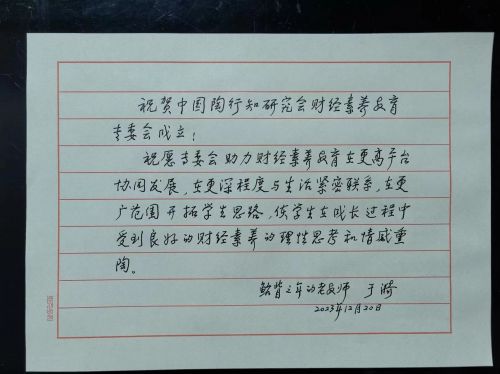 祝贺中国陶行知研究会财经素养教育
专委会成立！
祝愿专委会助力财经素养教育在更高平台
协同发展，在更深程度与生活紧密联系，在更
广范围开拓学生思路，使学生在成长过程中
受到良好的财经素养的理性思考和情感熏
陶。
鲐背之年的老教师 于漪
2023年12月20日